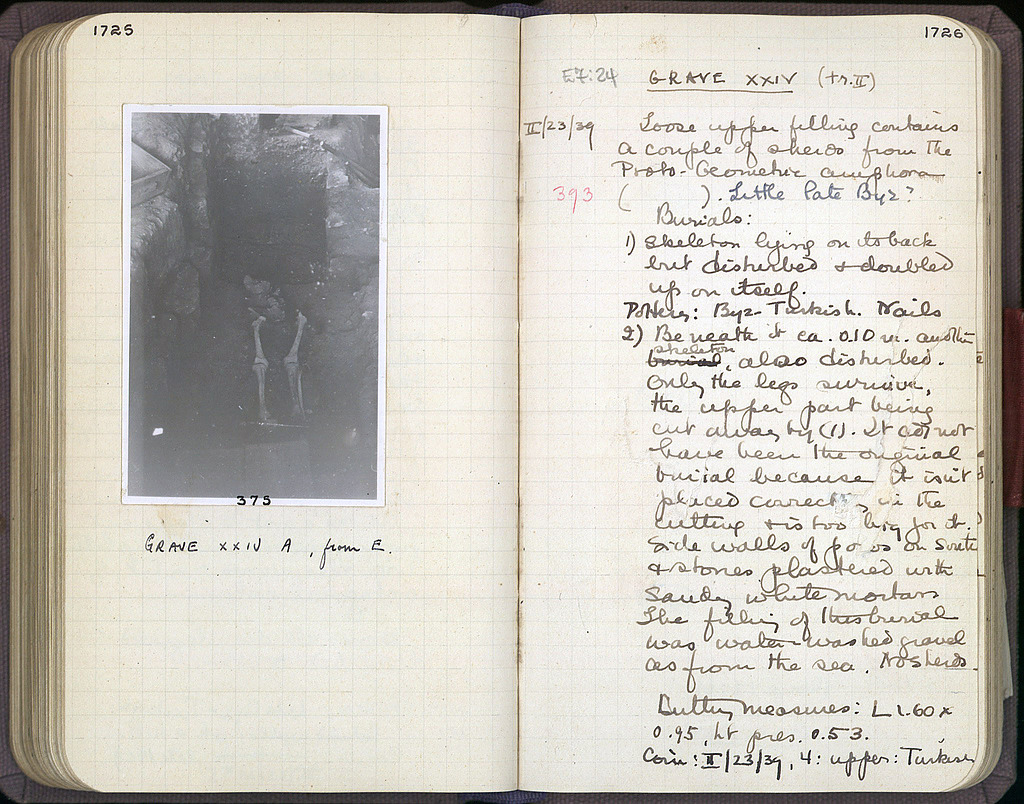 1725
375
GRAVE XXIV A, from E.
1726
E7:24 GRAVE XXIV (tr. II)
II/23/39 Loose upper filling contains
a couple of sherds from the
Proto-Geometric amphora
393 ( ). Little late Byz?
Burials:
1) Skeleton lying on its back
but disturbed & doubled
up on itself.
Pottery: Byz-Turkish. Nails
2) Beneath it ca. 0.10 m. another
skeleton
burial, also disturbed.
Only the legs survive,
the upper part being
cut away by (1). It could not
have been the original
burial because it isn't
placed correctly in the
cutting & is too big for it.
Side walls of poros on South
& stones plastered with
sandy white mortar
The filling of this burial
was water-washed gravel
as from the sea. No sherds.
Cutting measures: L 1.60 x
0.95, ht pres. 0.53.
Coin: II/23/39, 4: upper: Turkish